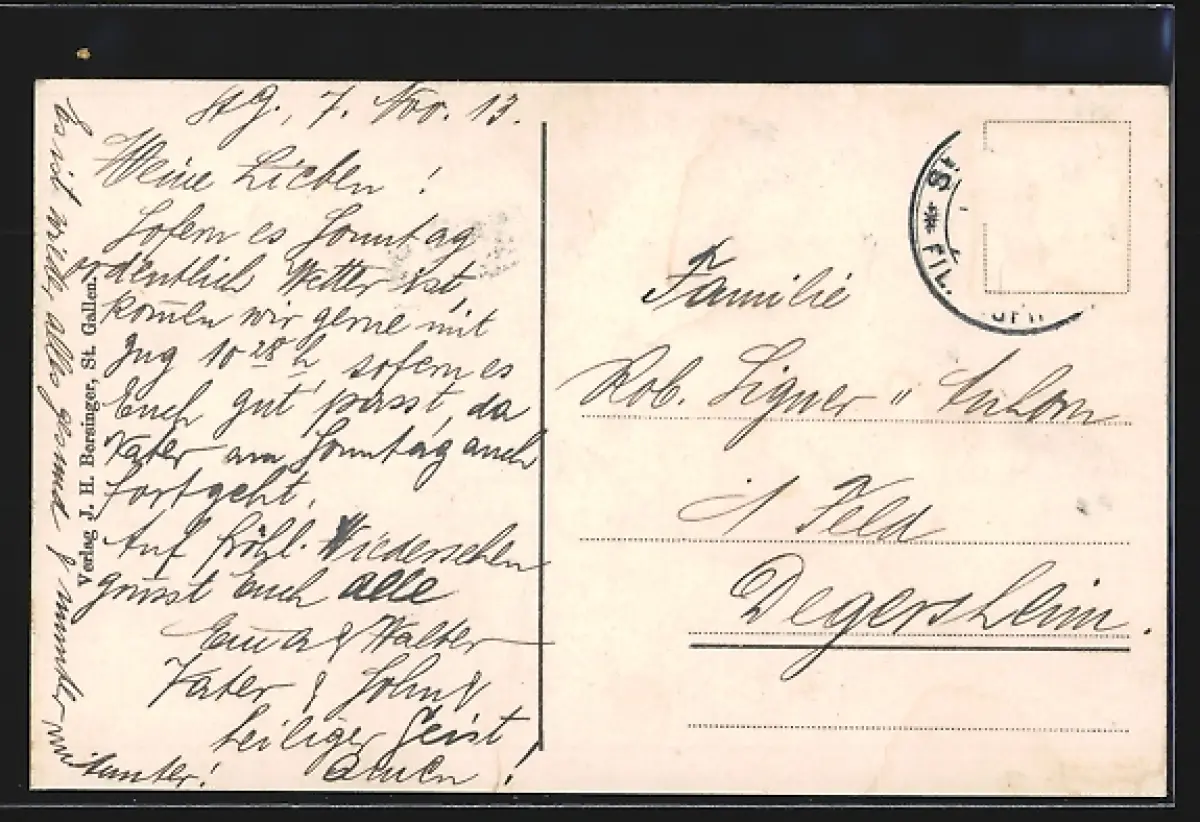 St. G., 7. Nov. 13.
Meine Lieben!
Sofern es Sonntag
ordentlich Wetter ist,
kom̅en wir gerne mit
Zug 10 28 h, sofern es
Euch gut passt, da
Vater am Sonntag auch
fortgeht.
Auf fröhl. Wiedersehen
grüsst Euch alle
Emma & Walter
Vater & Sohn &
heiliger Geist,
Amen!
alles gesund & munter
mitunter!
Verlag J. H. Bersinger, St. Gallen.
Familie
Rob. Signer
Feld
Degersheim.